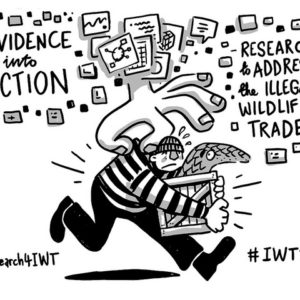 VIDENCE
into
CTION
RESEARC
to ADDRE
the ILLEGA
WILDLIF
TRADE
earch4IWT
#IWT